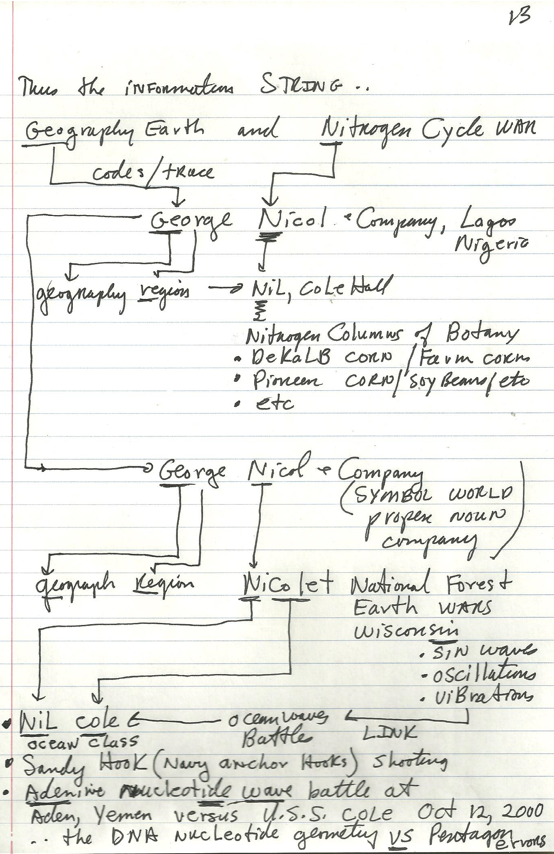 13
Thus the information STRING ..
Geography Earth and Nitrogen Cycle WAR
codes/trace
George Nicol + Company, Lagos
Nigeria
geography region → NiL, Cole Hall
Nitrogen Columns of Botany
• DeKALB corn / Farm corn
• Pioneer corn / Soy Beans / etc
• etc
George Nicol + Company
(SYMBOL WORLD
proper noun
company)
geograph Region Nicolet National Forest
Earth WARS
Wisconsin
• sin waves
• oscillations
• vibrations
• NiL cole ← ocean waves ← LINK
Battle
ocean class
• Sandy Hook (Navy anchor Hooks) shooting
• Adenine nucleotide wave battle at
Aden, Yemen versus U.S.S. Cole Oct 12, 2000
.. the DNA nucleotide geometry vs Pentagon errors